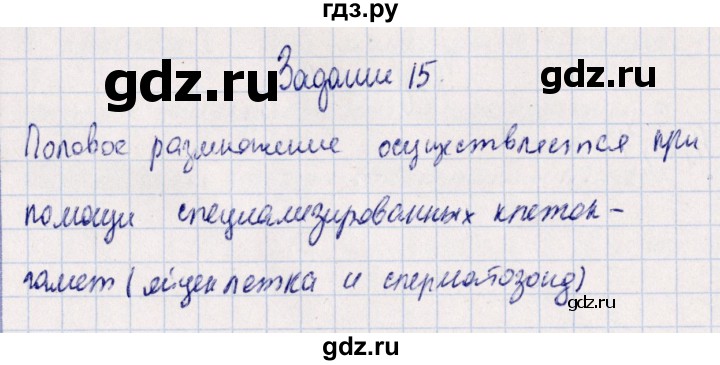 гдз.ру
gdz.ru gdz.ru
Задание 15.
Половое размножение осуществляется при
помощи специализированных клеток -
гамет (яйцеклетка и сперматозоид)
gdz.ru gdz.ru
gdz.ru